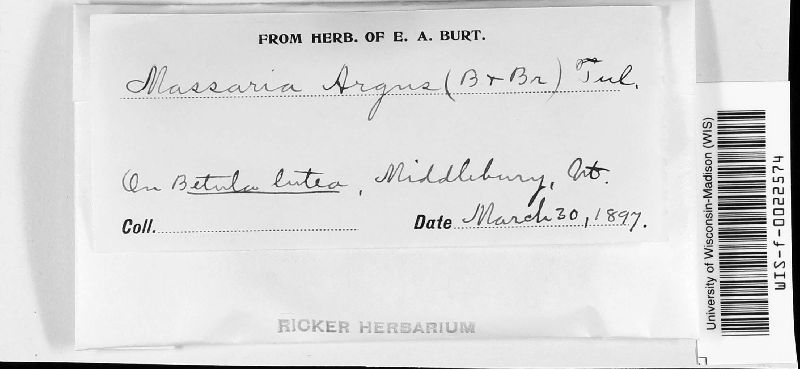 FROM HERB. OF E. A. BURT.
Massaria Argus (B & Br) Tul.
On Betula lutea, Middlebury, Vt.
Coll. Date March 30, 1897.
RICKER HERBARIUM
University of Wisconsin-Madison (WIS)
WIS-f-0022574